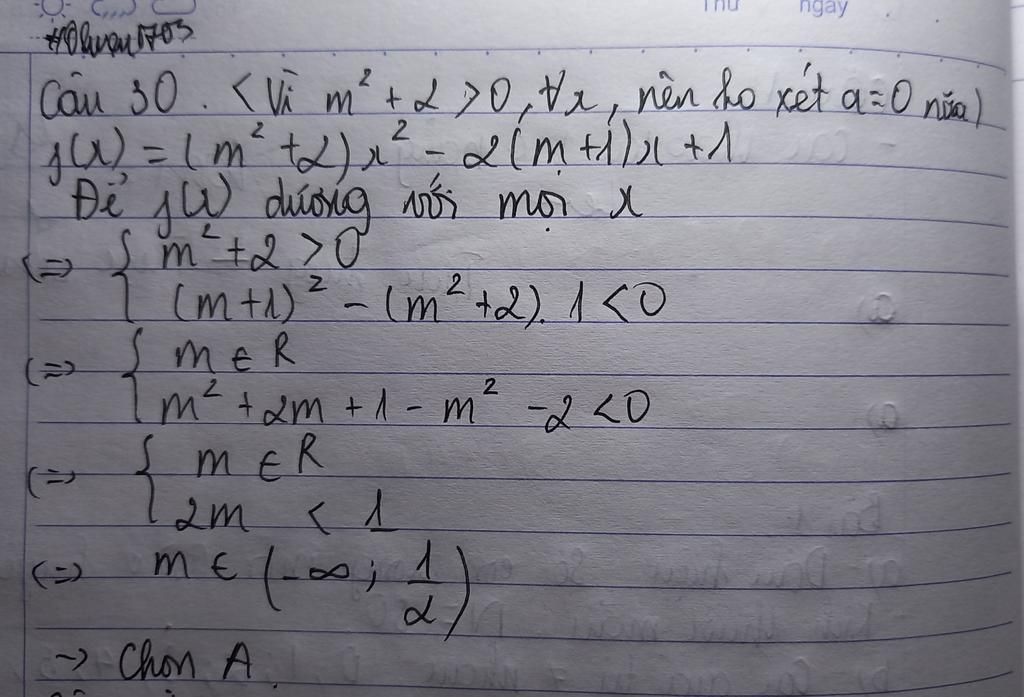 Thứ ngày
Câu 30. <Vì m² + 2 > 0, ∀x, nên ko xét a = 0 nữa)
f(x) = (m² + 2)x² - 2(m+1)x + 1
Để f(x) dương với mọi x
(=> { m² + 2 > 0
(m+1)² - (m² + 2). 1 < 0
(=> { m ∈ R
m² + 2m + 1 - m² - 2 < 0
(=> { m ∈ R
2m < 1
(=> m ∈ (-∞; 1/2)
-> Chọn A